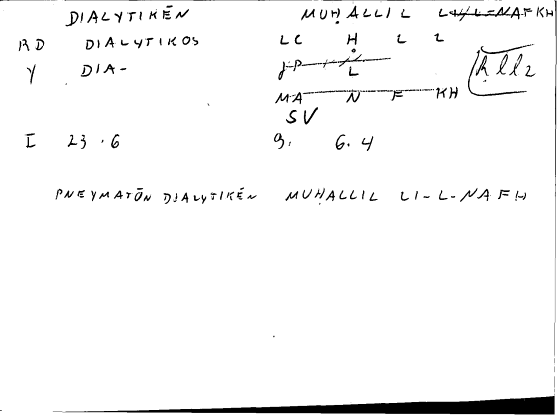 DIALYTIKĒN MUḤALLIL L
RD DIALYTIKOS LC Ḥ L L
Y DIA- L ḥll2
MA N F KH
SV
I 23.6 9. 6.4
PNEYMATŌN DIALYTIKĒN MUḤALLIL LI-L-NAFH